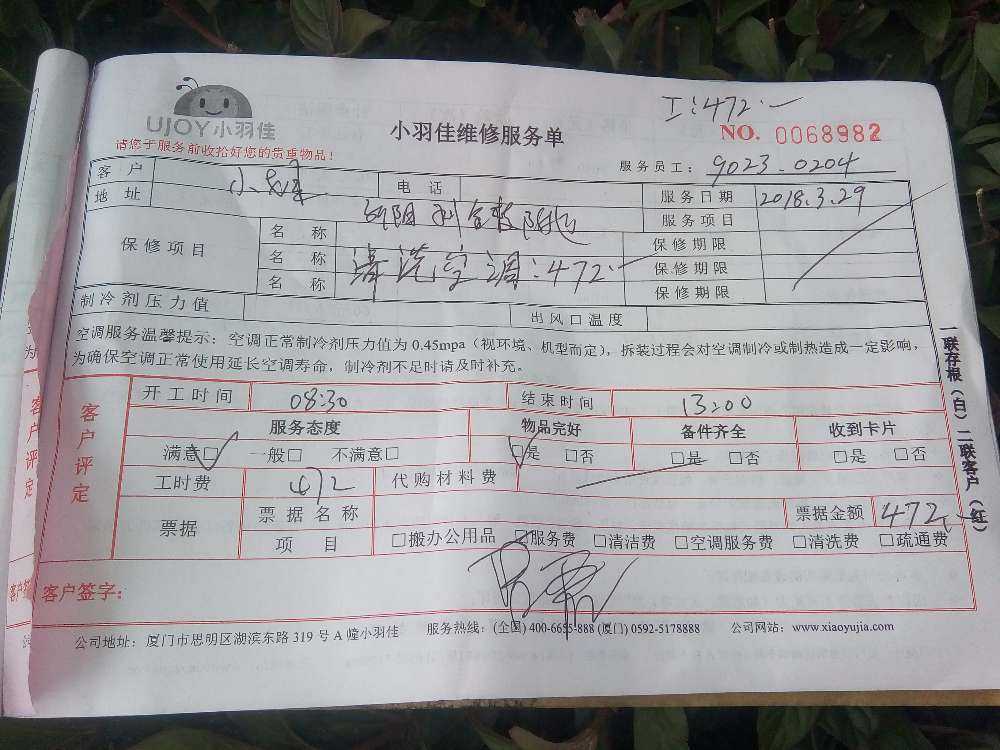 工:472.一
UJOY小羽佳
小羽佳维修服务单
NO. 0068982
请您于服务前收拾好您的贵重物品!
服务员工: 9023.0204
客 户 电 话 服务日期 2018.3.29
地 址 服务项目
保修项目 名 称 保修期限
名 称 清洗空调:472.一 保修期限
名 称 保修期限
制冷剂压力值 出风口温度
空调服务温馨提示: 空调正常制冷剂压力值为 0.45mpa(视环境、机型而定), 拆装过程会对空调制冷或制热造成一定影响,
为确保空调正常使用延长空调寿命, 制冷剂不足时请及时补充。
客户评定
开工时间 08:30 结束时间 13:00
服务态度 物品完好 备件齐全 收到卡片
满意□ 一般□ 不满意□ □是 □否 □是 □否 □是 □否
工时费 472 代购材料费
票据 票据名称 票据金额 472
项 目 □搬办公用品 □服务费 □清洁费 □空调服务费 □清洗费 □疏通费
客户签字:
公司地址: 厦门市思明区湖滨东路 319 号 A 幢小羽佳 服务热线: (全国) 400-6655-888 (厦门) 0592-5178888 公司网站: www.xiaoyujia.com
一联存根(白)二联客户(红)
客户评定